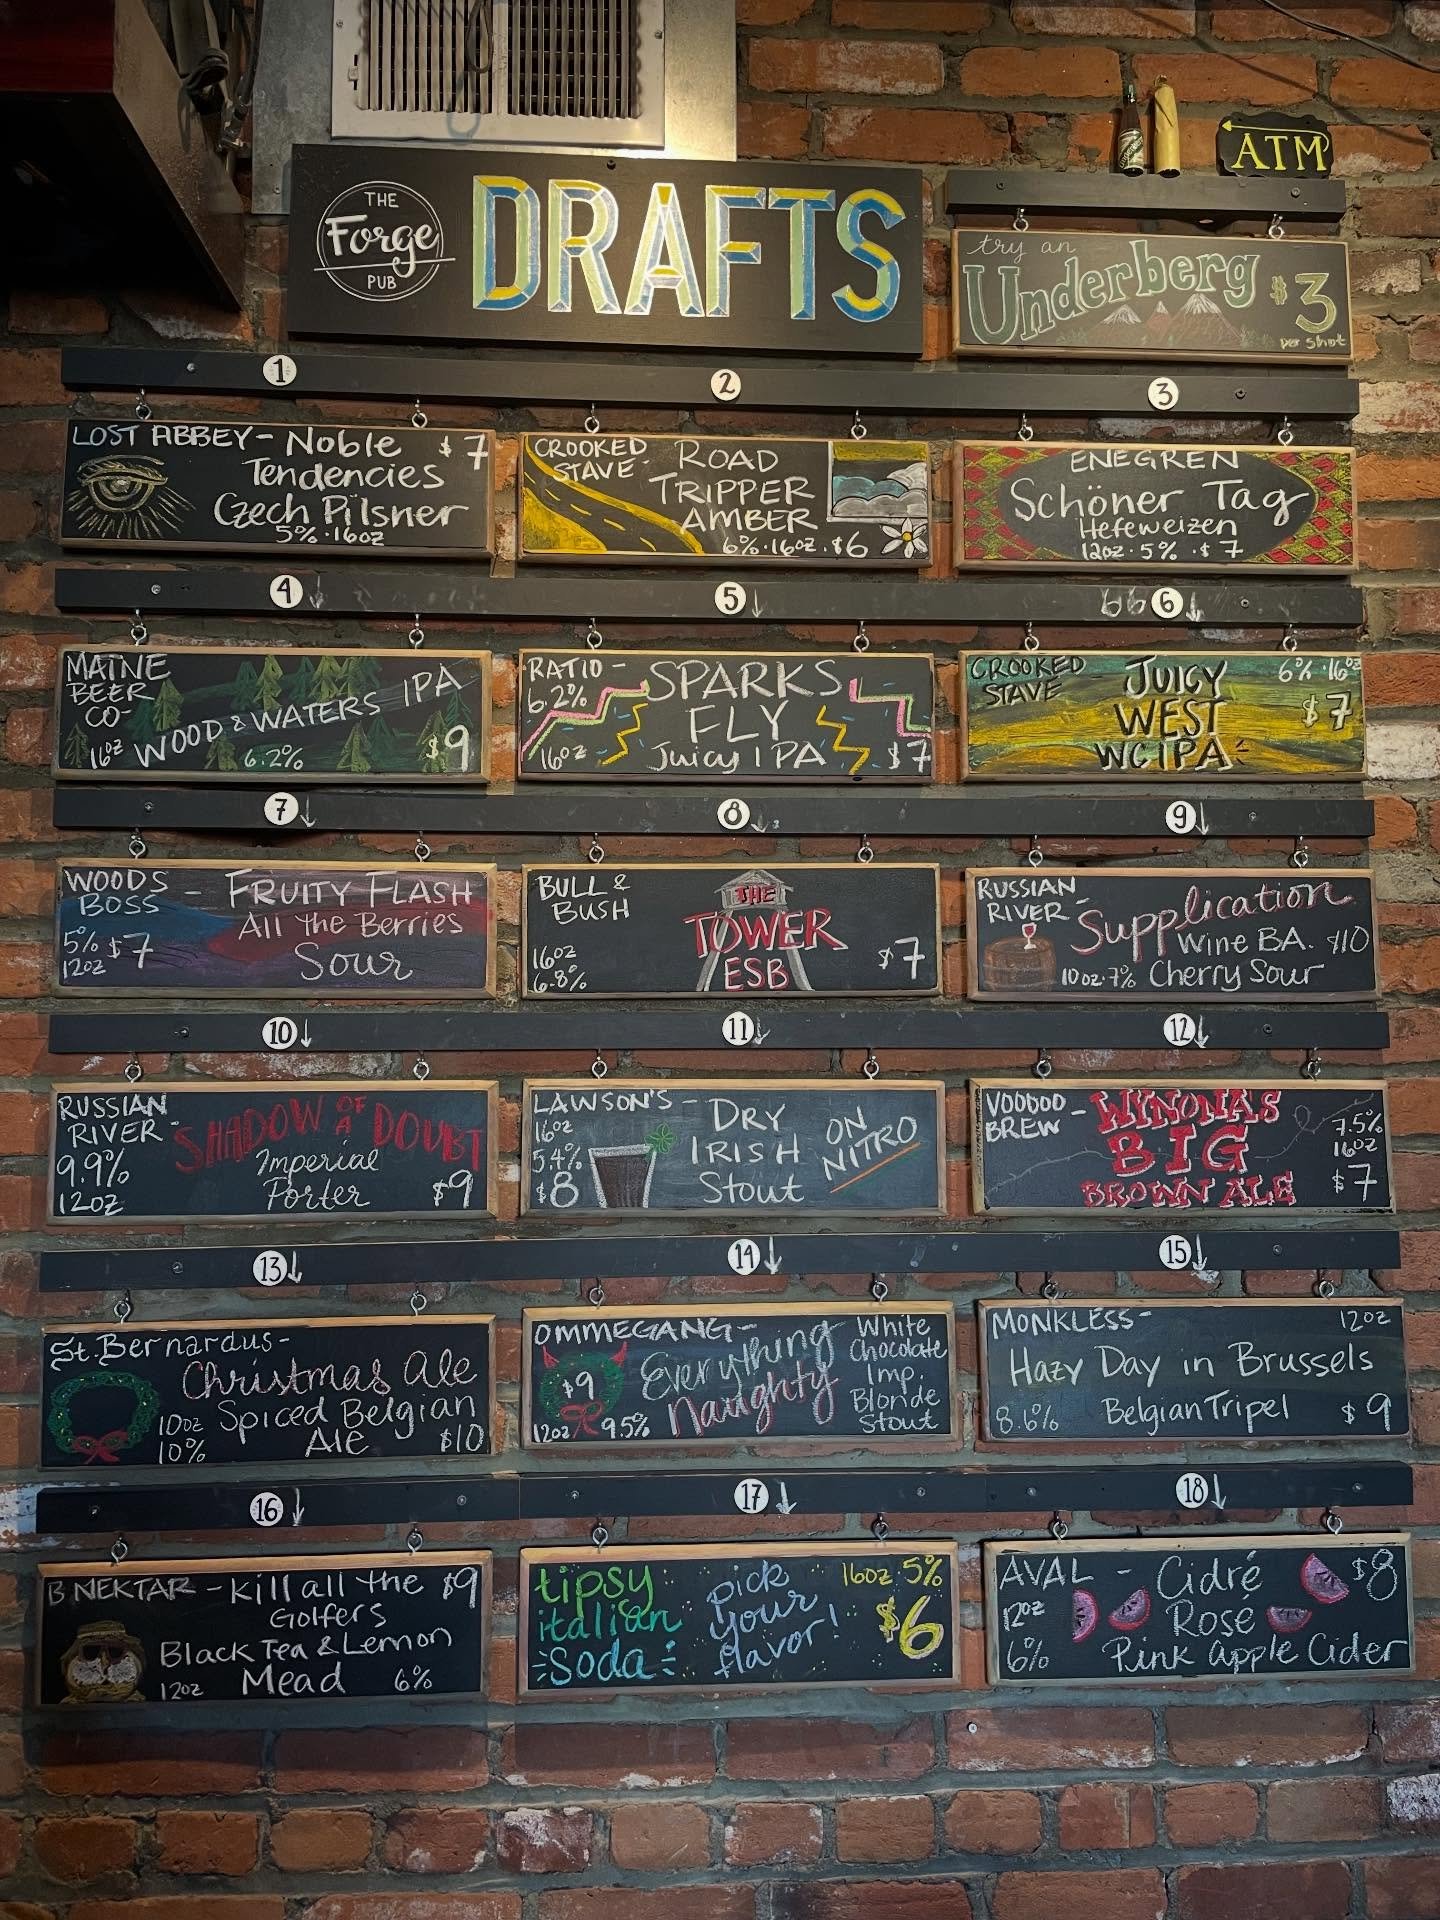 THE
Forge
PUB
DRAFTS
ATM
try an
Underberg $3
per shot
1
2
3
LOST ABBEY - Noble $7
Tendencies
Czech Pilsner
5% · 16oz
CROOKED
STAVE -
ROAD
TRIPPER
AMBER
6% · 16oz · $6
ENEGREN
Schöner Tag
Hefeweizen
12oz · 5% · $7
4
5
6
MAINE
BEER
CO-
WOOD & WATERS IPA
16oz
6.2%
$9
RATIO -
6.2%
SPARKS
FLY
Juicy IPA
16oz
$7
CROOKED
STAVE
JUICY
WEST
WC IPA
6% · 16oz
$7
7
8
9
WOODS
BOSS -
FRUITY FLASH
All the Berries
Sour
5%
12oz
$7
BULL &
BUSH
THE
TOWER
ESB
16oz
6.8%
$7
RUSSIAN
RIVER -
Supplication
Wine BA. $10
10oz · 7% Cherry Sour
10
11
12
RUSSIAN
RIVER -
SHADOW OF A DOUBT
Imperial
Porter
9.9%
12oz
$9
LAWSON'S -
16oz
5.4%
$8
DRY
IRISH
Stout
ON
NITRO
VOODOO
BREW -
WYNONA'S
BIG
BROWN ALE
7.5%
16oz
$7
13
14
15
St. Bernardus -
Christmas Ale
Spiced Belgian
Ale
10oz
10%
$10
OMMEGANG -
Everything
Naughty
$9
12oz 9.5%
White
Chocolate
Imp.
Blonde
Stout
MONKLESS - 12oz
Hazy Day in Brussels
8.6% Belgian Tripel $9
16
17
18
B NEKTAR - Kill all the $9
Golfers
Black Tea & Lemon
12oz Mead 6%
tipsy
italian
soda
pick
your
flavor!
16oz 5%
$6
AVAL - Cidré $8
12oz Rosé
6% Pink Apple Cider